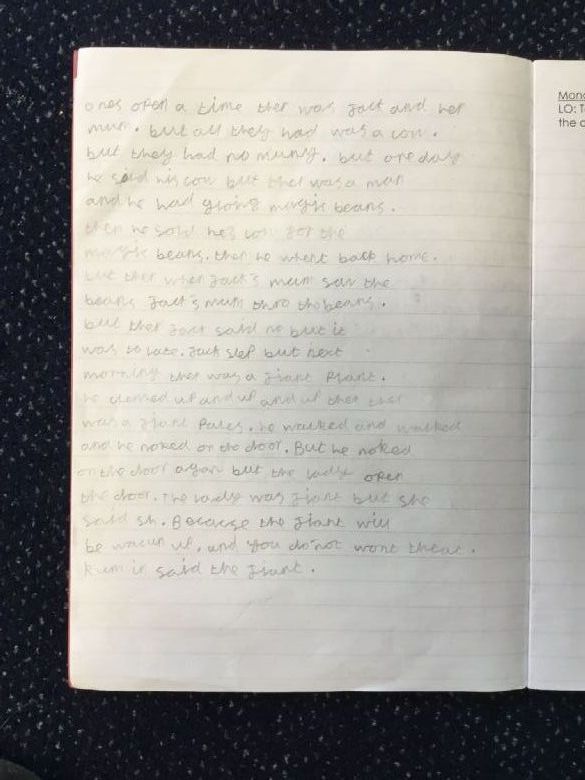 ones opon a time ther was Jack and her
mum. but all they had was a cow.
but they had no muny. but one day
he sold his cow but ther was a man
and he had gloing magic beans.
then he sold hes cow for the
magic beans. then he whent back home.
but ther when Jack's mum saw the
beans Jack's mum thro the beans.
but ther Jack said no but it
was to late. Jack slep but next
morning ther was a giant Plant.
he climed up and up and up ther ther
was a giant Pales. he walked and walked
and he noked on the door. But he noked
on the door agan but the lady open
the door. The lady was giant but she
said sh. Because the giant will
be wacun up. and you do not wont that.
kum in said the giant.
Mon
LO: T
the c